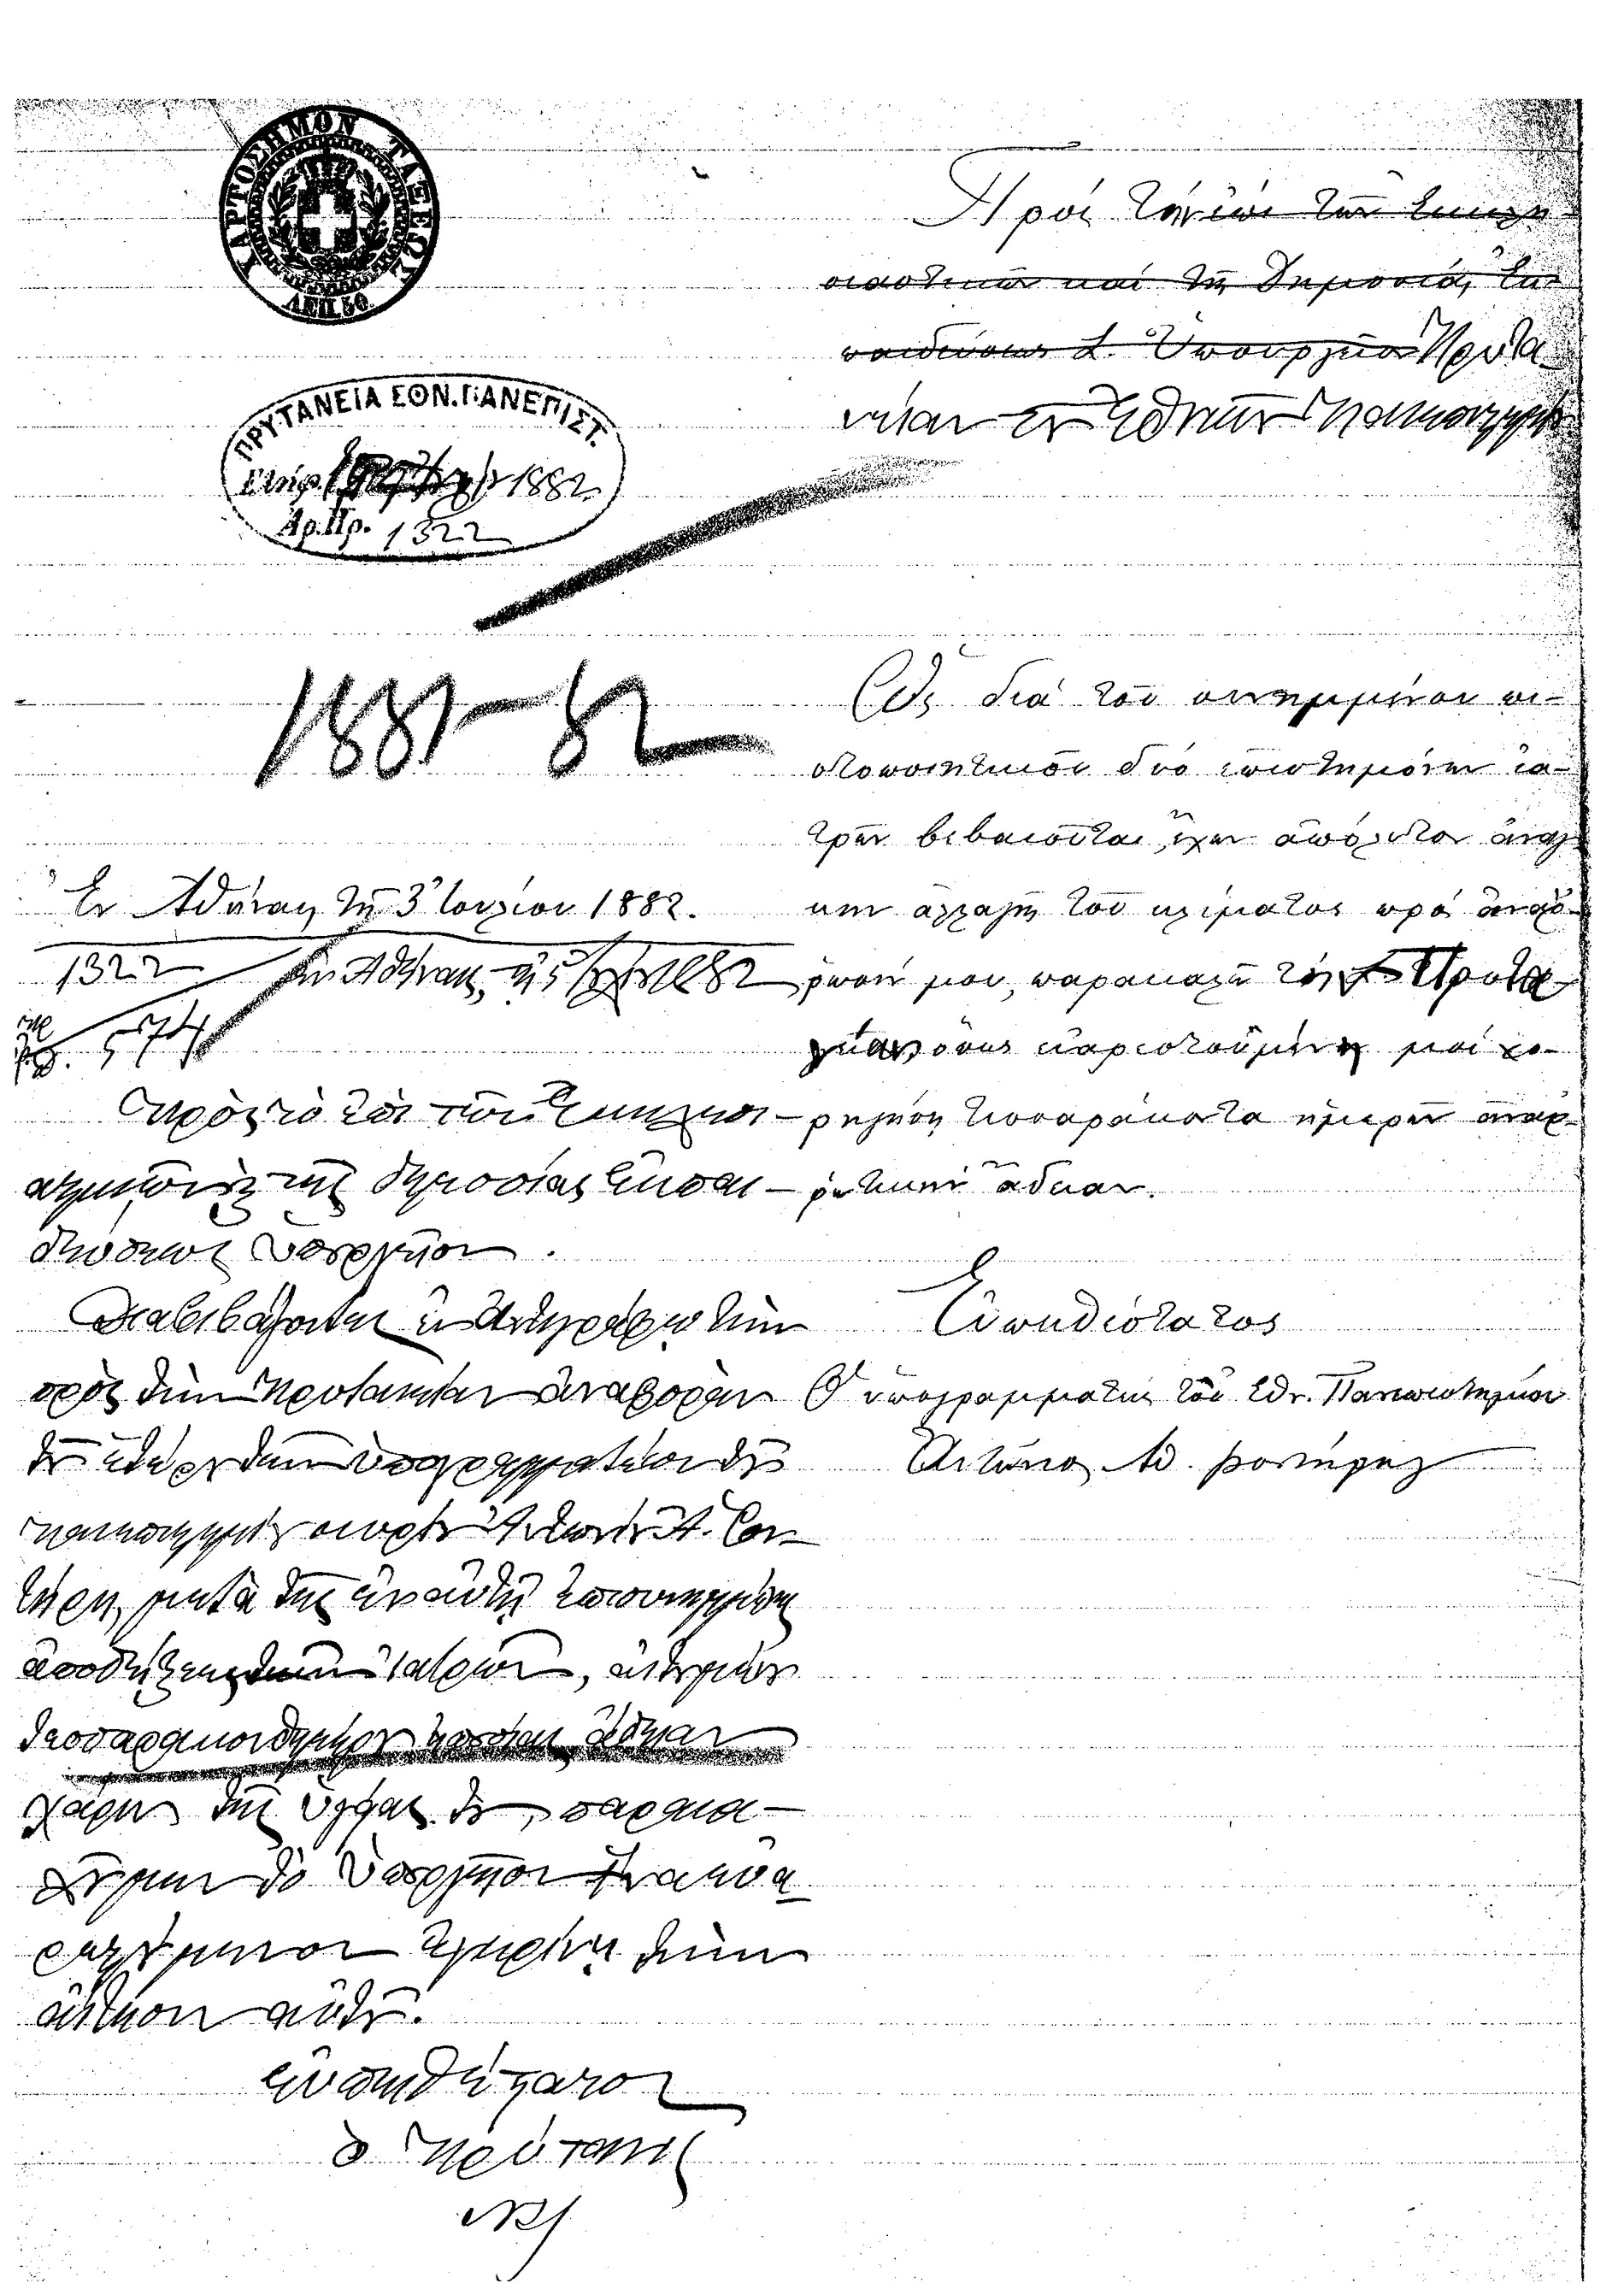 ΧΑΡΤΟΣΗΜΟΝ ΤΑΞΕΩΣ
ΛΕΠ. 50.
Πρὸς τὴν ἐπὶ τῶν Ἐκκλη-
σιαστικῶν καὶ τῆς Δημοσίας Ἐκ-
παιδεύσεως Β. Ὑπουργεῖον Πρυτα-
νείαν τοῦ Ἐθνικοῦ Πανεπιστημίου
ΠΡΥΤΑΝΕΙΑ ΕΘΝ. ΠΑΝΕΠΙΣΤ.
1882
Ἀρ. Πρ. 1322
1881-82
Ὡς διὰ τοῦ συνημμένου πι-
στοποιητικοῦ δύο ἐπιστημόνων ἰα-
τρῶν βεβαιοῦται, ἔχων ἀπόλυτον ἀνάγ-
κην ἀλλαγῆς τοῦ κλίματος πρὸς ἀνάῤ-
ρωσίν μου, παρακαλῶ τὴν Πρυτα-
νείαν ὅπως εὐαρεστουμένη μοὶ χο-
ρηγήσῃ τεσσαράκοντα ἡμερῶν ἀναῤ-
ρωτικὴν ἄδειαν.
Εὐπειθέστατος
Ὁ ὑπογραμματεὺς τοῦ Ἐθν. Πανεπιστημίου
Ἀντώνιος Ἀ.
Ἐν Ἀθήναις τῇ 3 Ἰουλίου 1882.
1322 Ἐν Ἀθήναις τῇ 5 1882
574
Πρὸς τὸ ἐπὶ τῶν Ἐκκλησι-
αστικῶν καὶ τῆς δημοσίας Ἐκπαι-
δεύσεως Ὑπουργεῖον.
Διαβιβάζοντες ἐν ἀντιγράφῳ τὴν
πρὸς τὴν Πρυτανείαν ἀναφορὰν
τοῦ ὑπογραμματέως τοῦ
Πανεπιστημίου κυρίου Ἀντωνίου Ἀ.
μετὰ τῆς ἐν αὐτῇ ἐπισυνημμένης
ἀποδείξεως τῶν ἰατρῶν, αἰτουμένου
τεσσαρακονθήμερον ἄδειαν
χάριν τῆς ὑγείας του, παρακα-
λοῦμεν τὸ Ὑπουργεῖον ἵνα εὐα-
ρεστούμενον ἐγκρίνῃ τὴν
αἴτησιν αὐτοῦ.
εὐπειθέστατος
ὁ Πρύτανις